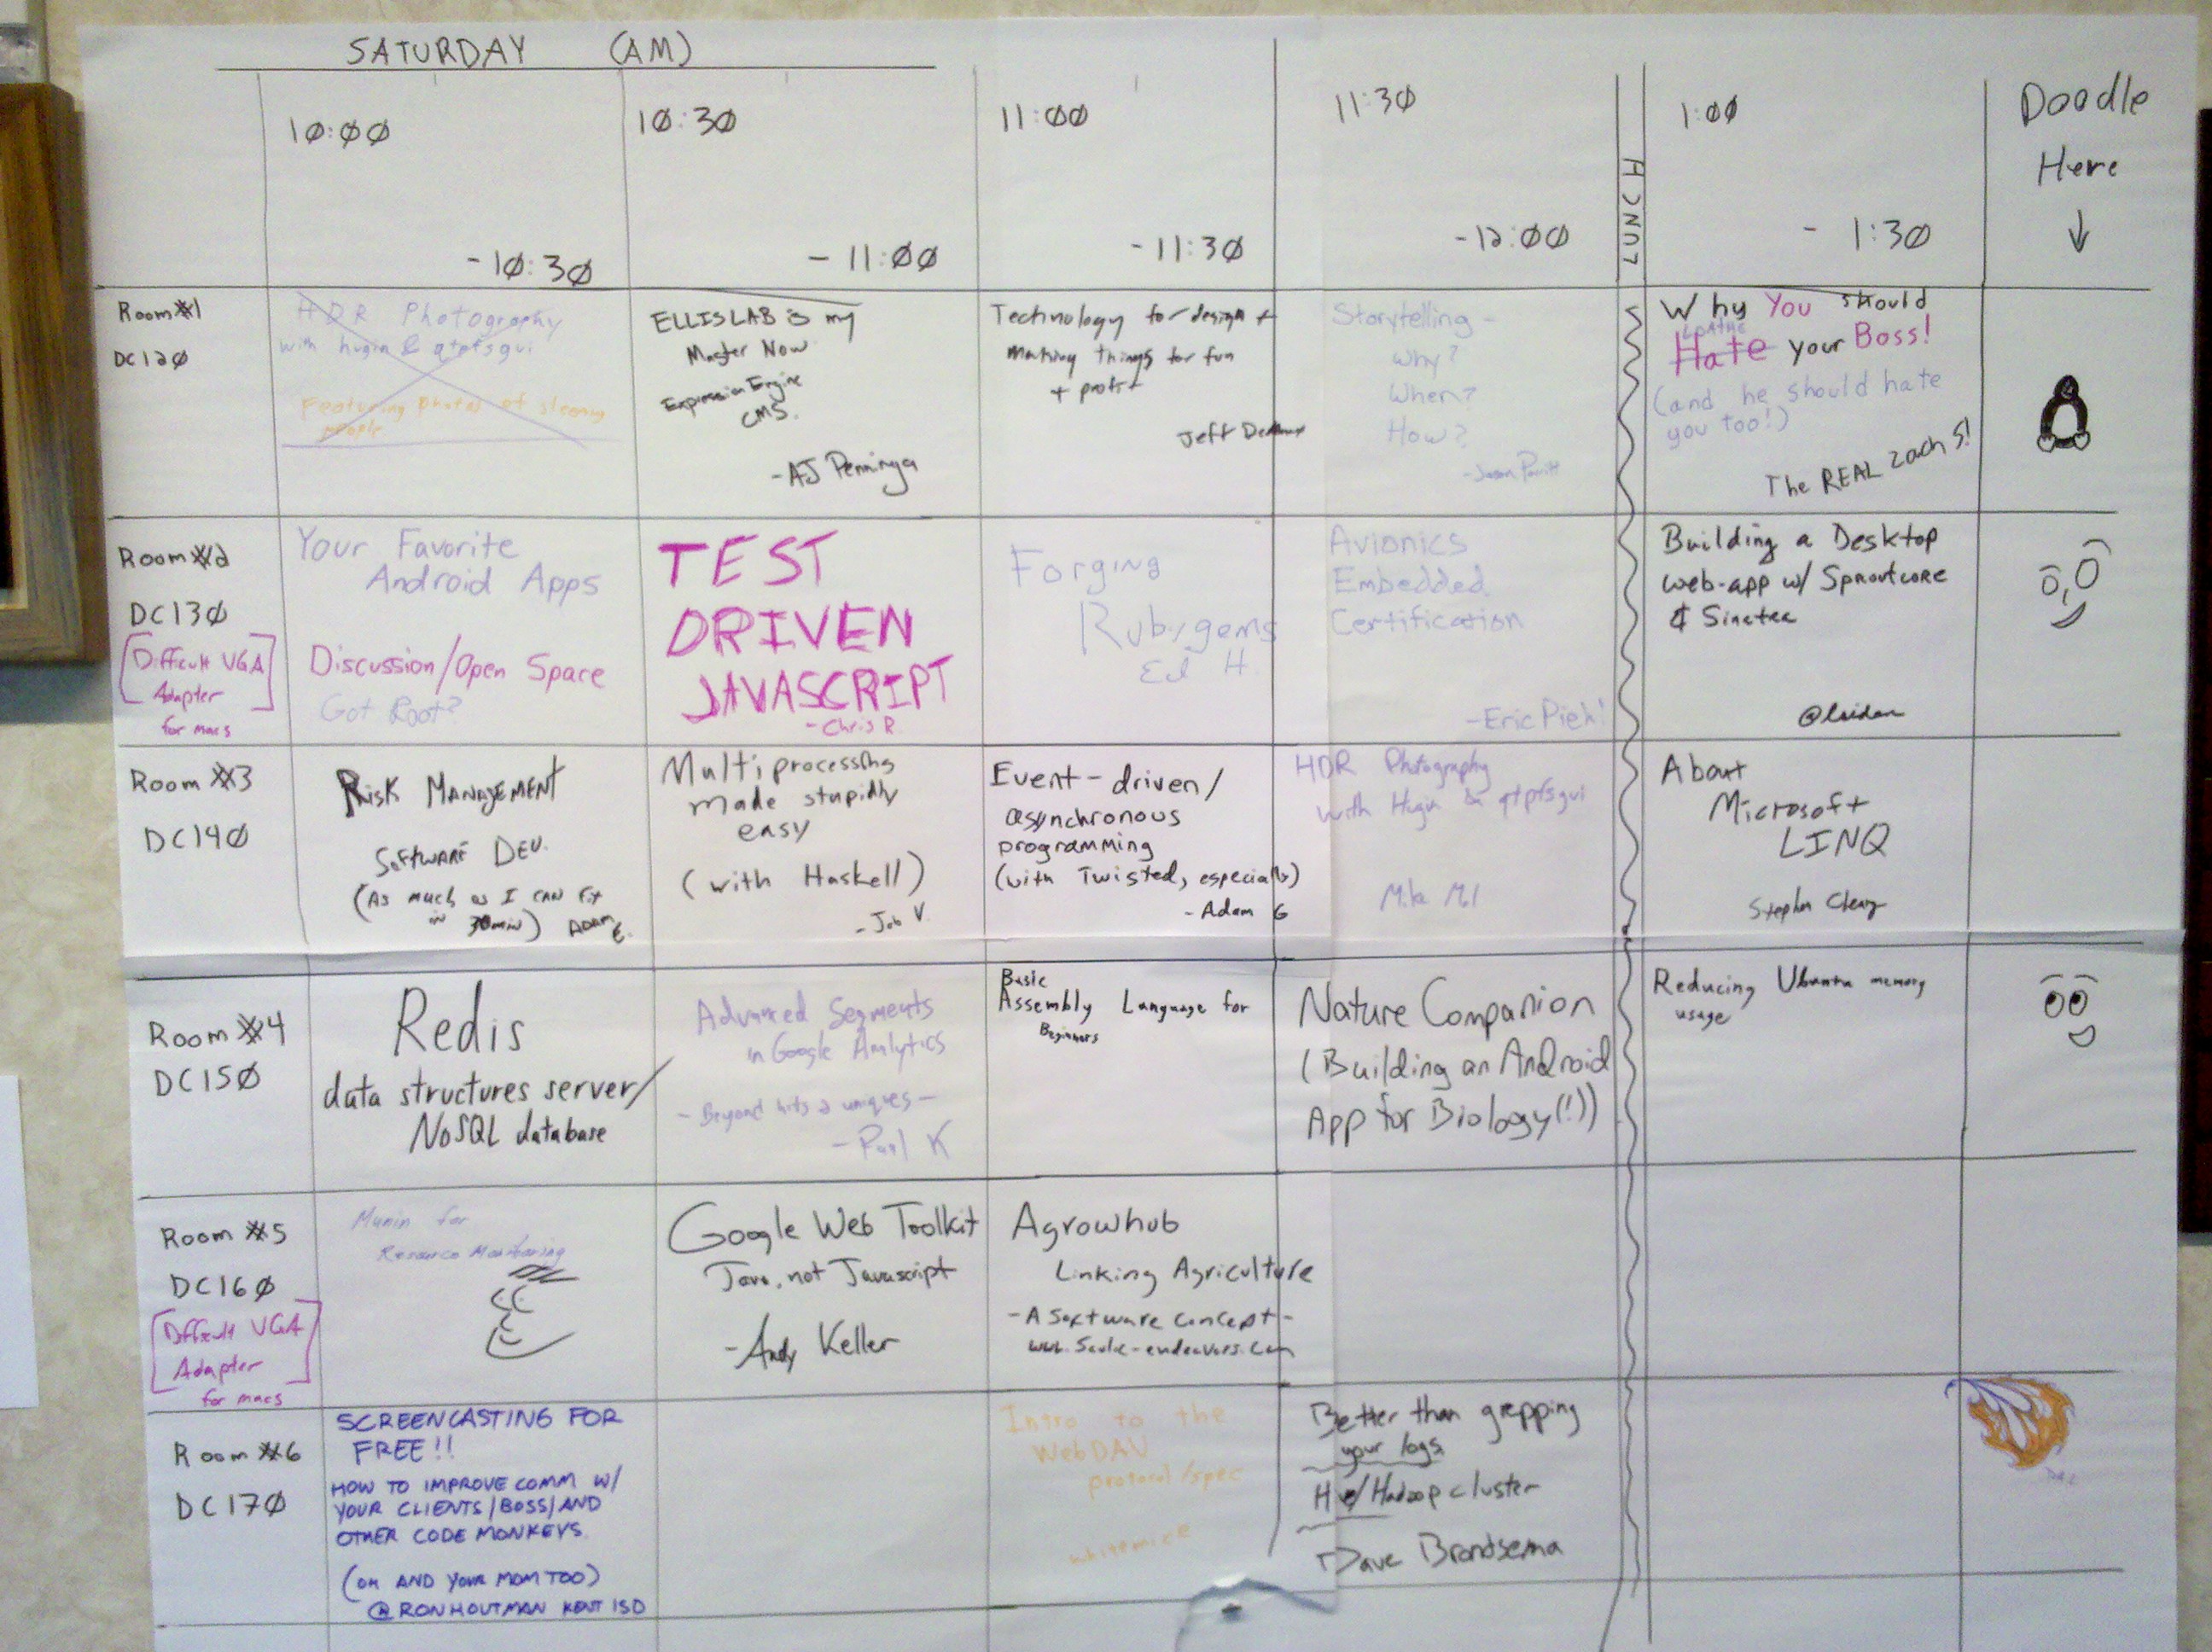 SATURDAY (AM)
10:00
-10:30
10:30
- 11:00
11:00
-11:30
11:30
-12:00
LUNCH
1:00
- 1:30
Doodle
Here
↓
Room #1
DC120
HDR Photography
with hugin & qtpfsgui
Featuring photos of sleeping
people
ELLISLAB is my
Master Now
Expression Engine
CMS.
-AJ Penninga
Technology for design +
making things for fun
+ profit
Jeff
Storytelling -
Why?
When?
How?
Why You should
LOATHE
Hate your Boss!
(and he should hate
you too!)
The REAL Zach S!
Room #2
DC130
[Difficult VGA
Adapter]
for macs
Your Favorite
Android Apps
Discussion/Open Space
Got Root?
TEST
DRIVEN
JAVASCRIPT
-Chris R
Forging
Rubygems
Ed H.
Avionics
Embedded
Certification
-Eric
Building a Desktop
web-app w/ Sproutcore
& Sinatra
Room #3
DC140
RISK MANAGEMENT
SOFTWARE DEV.
(AS much as I CAN fit
in 30min) ADAM E.
Multiprocessing
made stupidly
easy
(with Haskell)
- Job V.
Event-driven/
asynchronous
programming
(with Twisted, especially)
- Adam G
HDR Photography
with Hugin & qtpfsgui
About
Microsoft
LINQ
Stephen Cleary
Room #4
DC150
Redis
data structures server/
NoSQL database
Advanced Segments
in Google Analytics
- Beyond hits & uniques -
- Paul K
Basic
Assembly Language for
Beginners
Nature Companion
(Building an Android
App for Biology(!))
Reducing Ubuntu memory
usage
Room #5
DC160
[Difficult VGA
Adapter]
for macs
Munin for
Resource Monitoring
Google Web Toolkit
Java, not Javascript
-Andy Keller
Agrowhub
Linking Agriculture
- A Software Concept -
Room #6
DC170
SCREENCASTING FOR
FREE!!
HOW TO IMPROVE COMM W/
YOUR CLIENTS/BOSS/AND
OTHER CODE MONKEYS.
(OH AND YOUR MOM TOO)
@RONHOUTMAN KENT ISD
Intro to the
WebDAV
protocol/spec
whitemice
Better than grepping
your logs
w/Hadoop cluster
Dave Brondsema